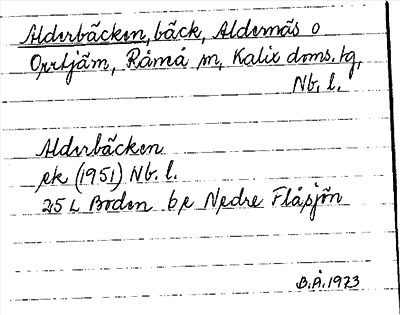 Alderbäcken, bäck, Aldernäs o
Orrtjärn, Råneå sn, Kalix doms. tg,
Nb. l.
Alderbäcken
ek (1951) Nb. l.
25 L Boden be Nedre Flåsjön
B.Å. 1973